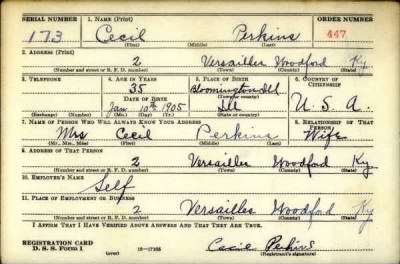 SERIAL NUMBER 1. NAME (Print) ORDER NUMBER
173 Cecil Perkins 447
(First) (Middle) (Last)
2. ADDRESS (Print)
2 Versailles Woodford Ky
(Number and street or R. F. D. number) (Town) (County) (State)
3. TELEPHONE 4. AGE IN YEARS 5. PLACE OF BIRTH 6. COUNTRY OF CITIZENSHIP
35 Bloomington Ill
DATE OF BIRTH (Town or county)
Jan 10th 1905 Ill U. S. A.
(Exchange) (Number) (Mo.) (Day) (Yr.) (State or country)
7. NAME OF PERSON WHO WILL ALWAYS KNOW YOUR ADDRESS 8. RELATIONSHIP OF THAT PERSON
Mrs Cecil Perkins Wife
(Mr., Mrs., Miss) (First) (Middle) (Last)
9. ADDRESS OF THAT PERSON
2 Versailles Woodford Ky
(Number and street or R. F. D. number) (Town) (County) (State)
10. EMPLOYER'S NAME
Self
11. PLACE OF EMPLOYMENT OR BUSINESS
2 Versailles Woodford Ky
(Number and street or R. F. D. number) (Town) (County) (State)
I AFFIRM THAT I HAVE VERIFIED ABOVE ANSWERS AND THAT THEY ARE TRUE.
REGISTRATION CARD
D. S. S. Form 1 (over) 16-17105 Cecil Perkins
(Registrant's signature)